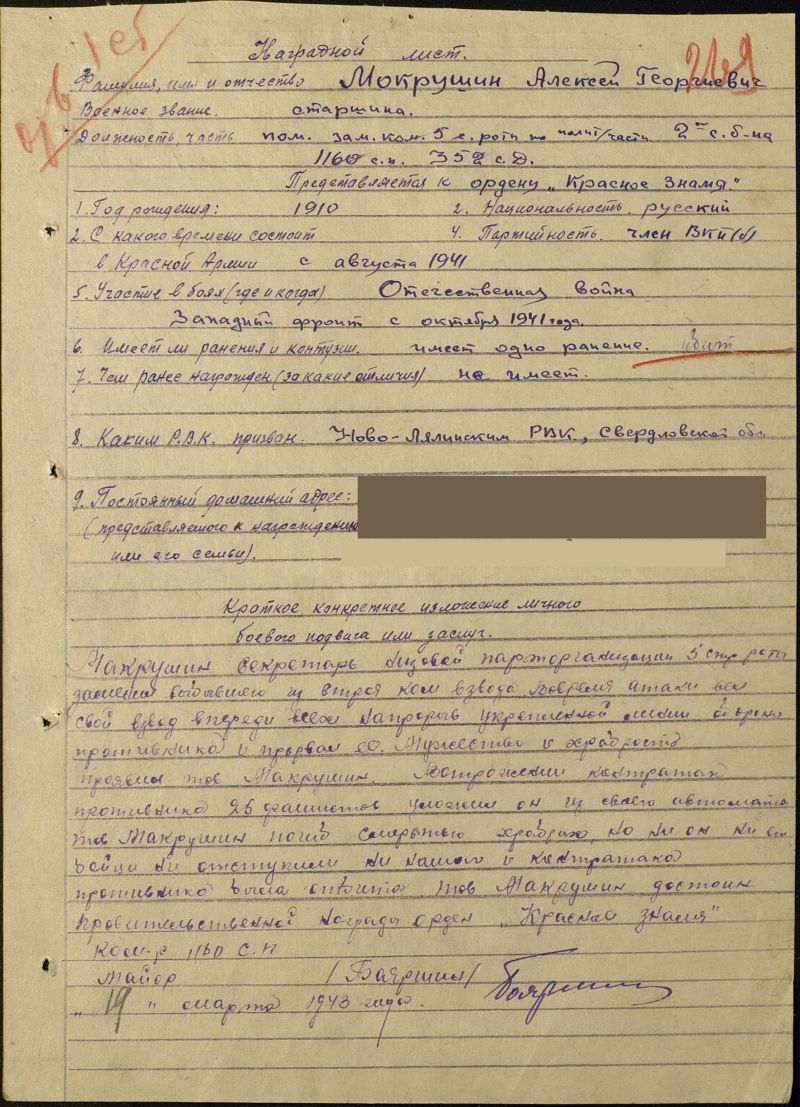 Наградной лист.
Фамилия, имя и отчество Мокрушин Алексей Георгиевич
Военное звание. старшина.
Должность, часть пом. зам. ком. 5 с. роты по полит/части 2го с. б-на
1160 с.п. 352 с.д.
Представляется к ордену „Красное Знамя."
1. Год рождения: 1910 2. Национальность. русский
2. С какого времени состоит 4. Партийность. член ВКП(б)
в Красной Армии с августа 1941
5. Участие в боях (где и когда) Отечественная война
Западный фронт с октября 1941 года.
6. Имеет ли ранения и контузии. имеет одно ранение. убит
7. Чем ранее награжден (за какие отличия) не имеет.
8. Каким Р.В.К. призван. Ново-Лялинским РВК., Свердловской обл.
9. Постоянный домашний адрес:
(представляемого к награждению
или его семьи).
Краткое, конкретное изложение личного
боевого подвига или заслуг.
Макрушин секретарь низовой парторганизации 5 стр роты
заменил выбывшего из строя ком взвода. Вовремя атаки вел
свой взвод впереди всех на прорыв укрепленной линии обороны
противника и прорвал ее. Мужество и храбрость
проявил тов Макрушин. контратак
противника 25 фашистов уложил он из своего автомата
тов Макрушин погиб смертью храбрых, но ни он ни его
бойцы ни отступили ни и контратака
противника была отбита. тов Макрушин достоин
провительственной награды орден „Красная знамя"
Ком-р 1160 С.П
майор /Бояршин/
„19" марта 1943 года.